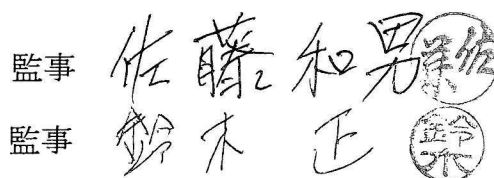 監事 佐藤和男 佐藤
監事 鈴木正 鈴木